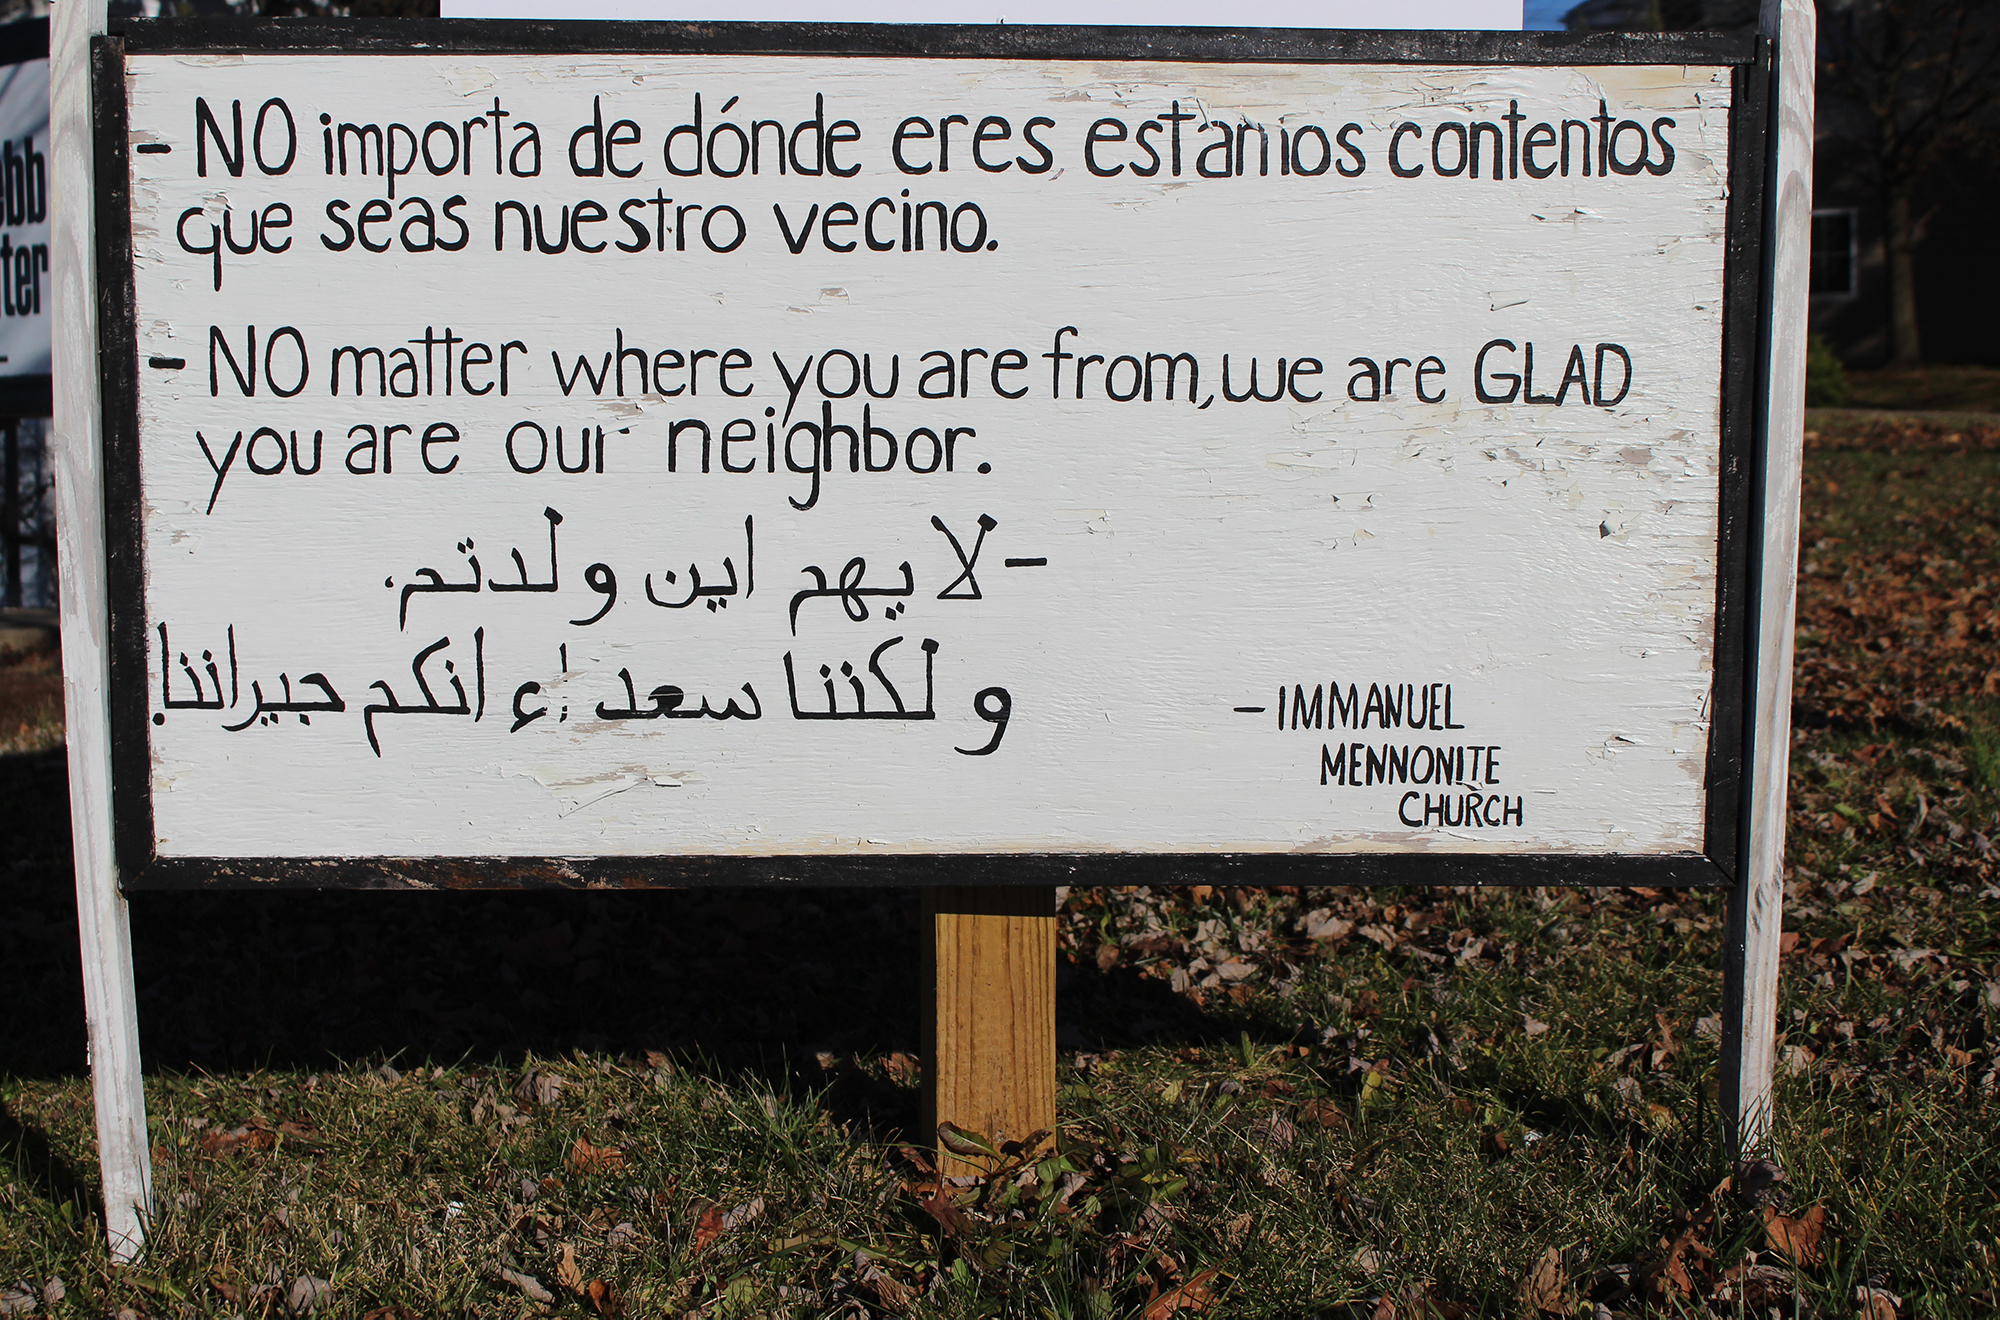 - NO importa de dónde eres estamos contentos
que seas nuestro vecino.
- NO matter where you are from, we are GLAD
you are our neighbor.
- لا يهم اين ولدتم.
و لكننا سعداء انكم جيراننا.
- IMMANUEL
MENNONITE
CHURCH